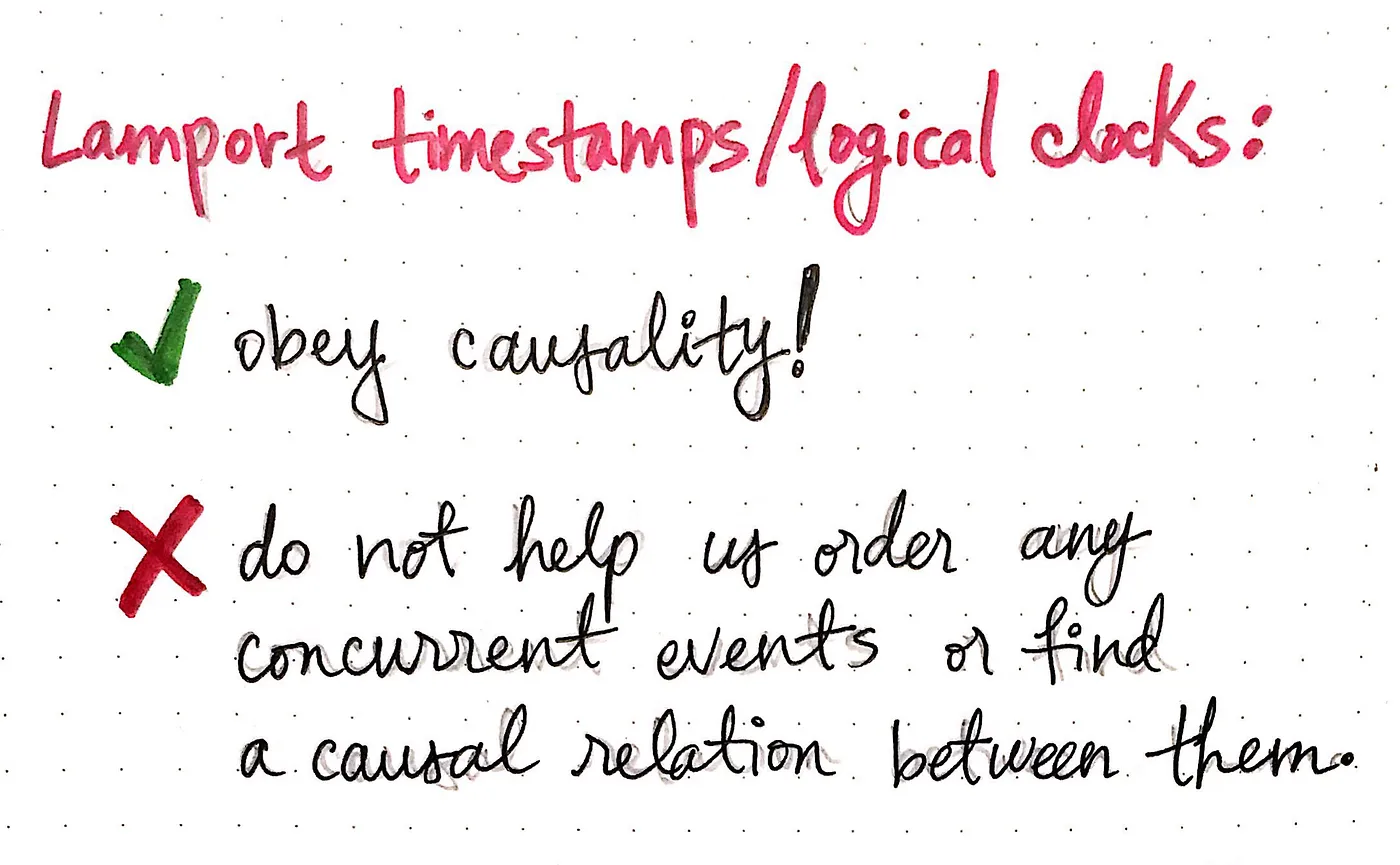 Lamport timestamps/logical clocks:
obey causality!
do not help us order any
concurrent events or find
a causal relation between them.